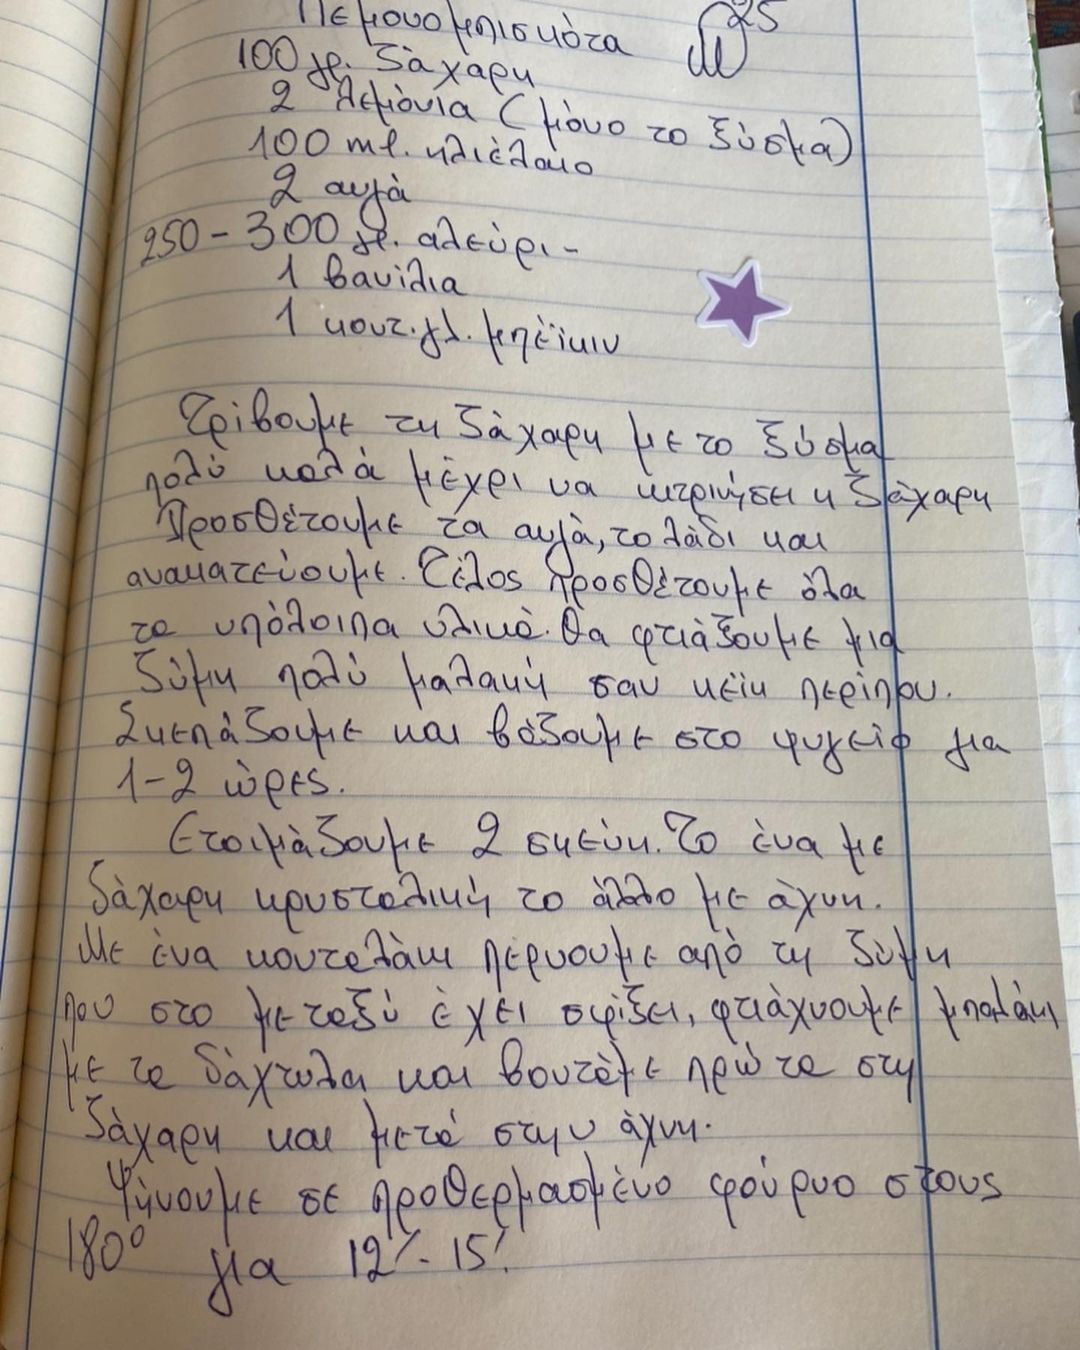 Λεμονομπισκότα 25
100 γρ. ζάχαρη
2 λεμόνια (μόνο το ξύσμα)
100 ml. ηλιέλαιο
2 αυγά
250-300 γρ. αλεύρι-
1 βανίλια
1 κουτ.γλ. μπέϊκιν
Τρίβουμε τη ζάχαρη με το ξύσμα
πολύ καλά μέχρι να κιτρινήσει η ζάχαρη
Προσθέτουμε τα αυγά, το λάδι και
ανακατεύουμε. Τέλος προσθέτουμε όλα
τα υπόλοιπα υλικά. Θα φτιάξουμε μια
ζύμη πολύ μαλακή σαν κέϊκ περίπου.
Σκεπάζουμε και βάζουμε στο ψυγείο για
1-2 ώρες.
Ετοιμάζουμε 2 σκεύη. Το ένα με
ζάχαρη κρυσταλική το άλλο με άχνη.
Με ένα κουταλάκι περνουμε από τη ζύμη
που στο μεταξύ έχει σφίξει, φτιάχνουμε μπαλάκι
με τα δάχτυλα και βουτάμε πρώτα στη
ζάχαρη και μετά στην άχνη.
Ψήνουμε σε προθερμασμένο φούρνο στους
180° για 12'-15'